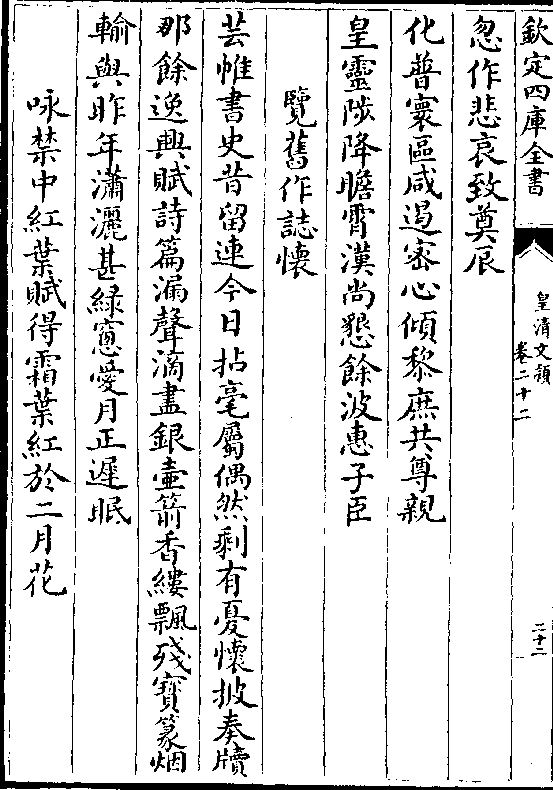 欽定四庫全書
皇清文穎
卷二十二
二十二
忽作悲哀致奠辰
化普寰區咸遏密心傾黎庶共尊親
皇靈陟降瞻霄漢尚懇餘波惠子臣
覽舊作誌懷
芸帷書史昔留連今日拈毫屬偶然剩有憂懷披奏牘
那餘逸興賦詩篇漏聲滴盡銀壺箭香縷飄殘寳篆烟
輸與昨年瀟灑甚緑窻愛月正遲眠
咏禁中紅葉賦得霜葉紅於二月花